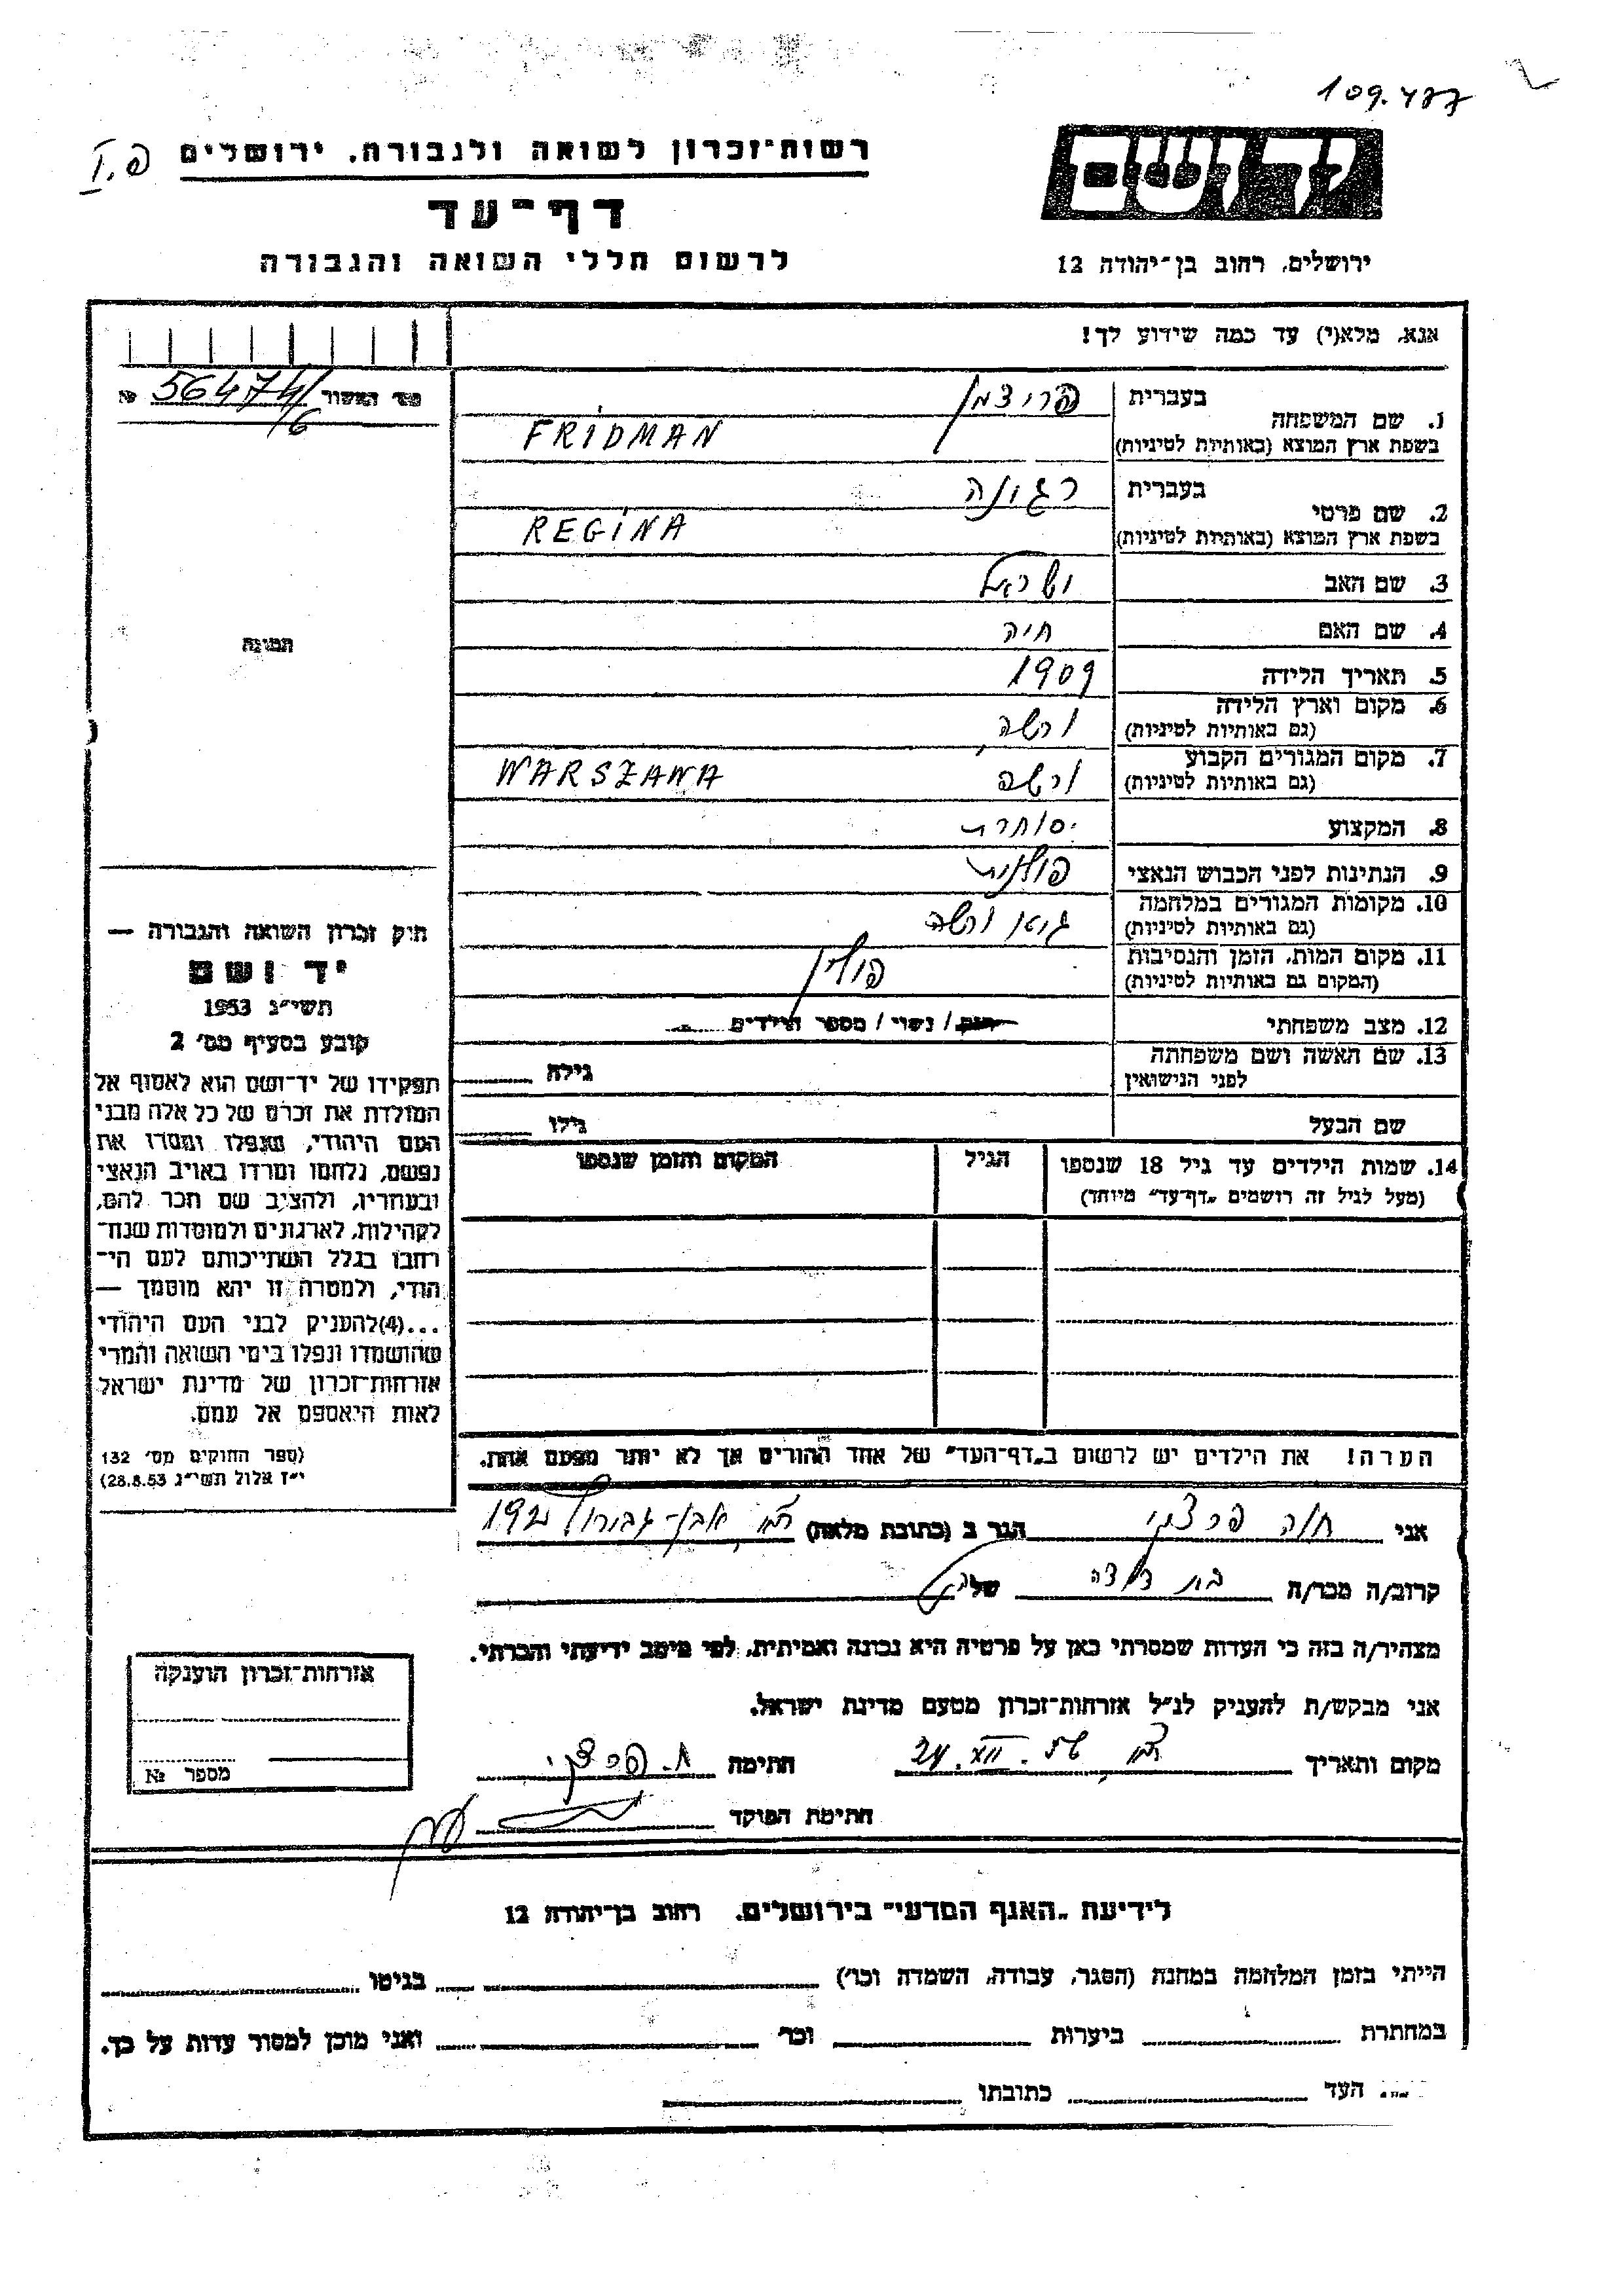 109.477
רשות־זכרון לשואה ולגבורה. ירושלים
דף־עד
לרשום חללי השואה והגבורה
ירושלים, רחוב בן־יהודה 12
אנא, מלא(י) עד כמה שידוע לך!
מס' האשור 56474/6 №
תמונה
חוק זכרון השואה והגבורה —
יד ושם
תשי״ג 1953
קובע בסעיף מס׳ 2
תפקידו של יד־ושם הוא לאסוף אל
המולדת את זכרם של כל אלה מבני
העם היהודי, שנפלו ומסרו את
נפשם, נלחמו ומרדו באויב הנאצי
ובעוזריו, ולהציב שם וזכר להם,
לקהילות, לארגונים ולמוסדות שנח־
רבו בגלל השתייכותם לעם הי־
הודי, ולמטרה זו יהא מוסמך —
...(4)להעניק לבני העם היהודי
שהושמדו ונפלו בימי השואה והמרי
אזרחות־זכרון של מדינת ישראל
לאות היאספם אל עמם.
(ספר החוקים מס׳ 132
י״ז אלול תשי״ג 28.8.53)
1. שם המשפחה בעברית פרידמן
בשפת ארץ המוצא (באותיות לטיניות) FRIDMAN
2. שם פרטי בעברית רגינה
בשפת ארץ המוצא (באותיות לטיניות) REGINA
3. שם האב ישראל
4. שם האם חיה
5. תאריך הלידה 1909
6. מקום וארץ הלידה ורשה
(גם באותיות לטיניות)
7. מקום המגורים הקבוע ורשה WARSZAWA
(גם באותיות לטיניות)
8. המקצוע סוחרת
9. הנתינות לפני הכבוש הנאצי פולנית
10. מקומות המגורים במלחמה גטו ורשה
(גם באותיות לטיניות)
11. מקום המות, הזמן והנסיבות פולין
(המקום גם באותיות לטיניות)
12. מצב משפחתי רווק / נשוי / מספר הילדים
13. שם האשה ושם משפחתה גילה
לפני הנישואין
שם הבעל גילו
14. שמות הילדים עד גיל 18 שנספו הגיל המקום והזמן שנספו
(מעל לגיל זה רושמים „דף־עד״ מיוחד)
הערה! את הילדים יש לרשום ב„דף־העד״ של אחד ההורים אך לא יותר מפעם אחת.
אני חוה הגר ב (כתובת מלאה) אבן־גבירול 192
קרוב/ה מכר/ה בת דודה של
מצהיר/ה בזה כי העדות שמסרתי כאן על פרטיה היא נכונה ואמיתית, לפי מיטב ידיעתי והכרתי.
אני מבקש/ת להעניק לנ״ל אזרחות־זכרון מטעם מדינת ישראל.
מקום ותאריך 24.XII.57 חתימה
חתימת הפוקד
אזרחות־זכרון הוענקה
מספר №
לידיעת „האגף המדעי״ בירושלים. רחוב בן־יהודה 12
הייתי בזמן המלחמה במחנה (הסגר, עבודה, השמדה וכו׳) בגיטו
במחתרת ביערות וכו׳ ואני מוכן למסור עדות על כך.
העד כתובתו